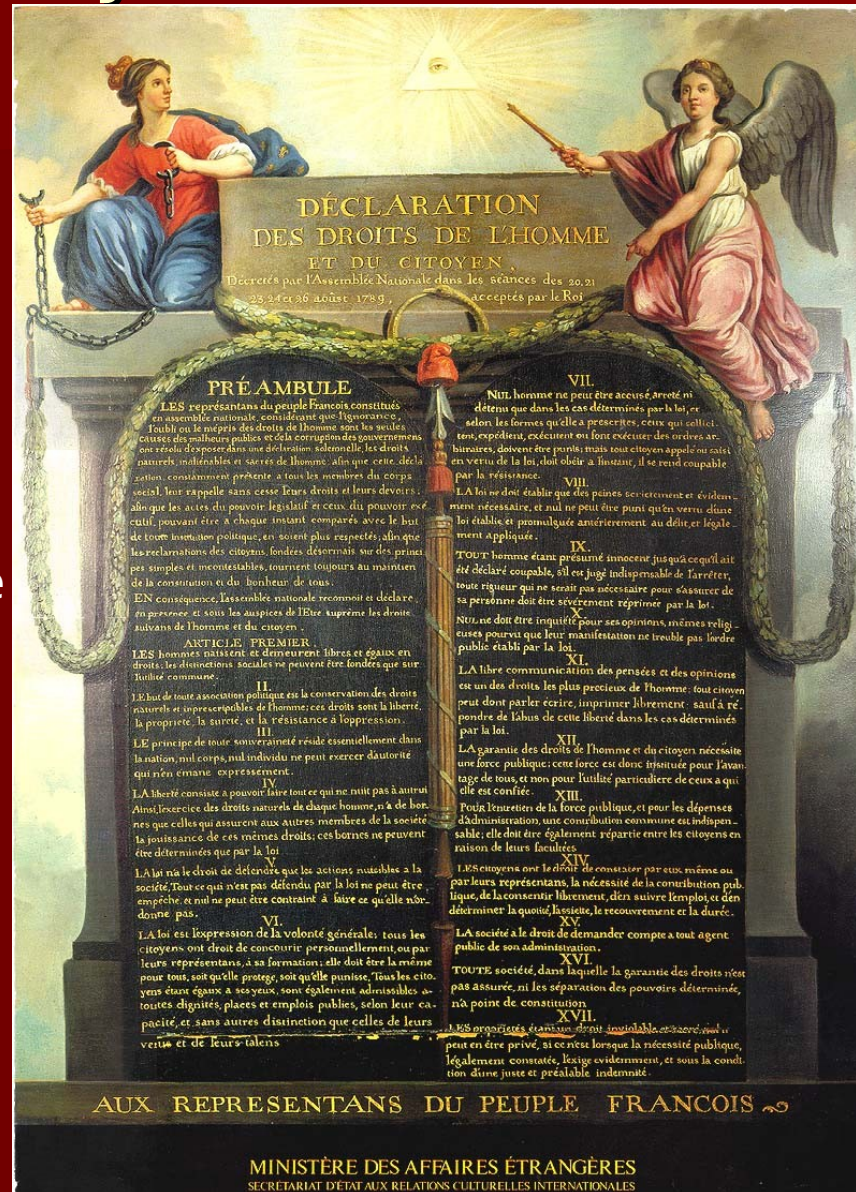 DÉCLARATION
DES DROITS DE L'HOMME
ET DU CITOYEN,
Décretés par l'Assemblée Nationale dans les séances des 20, 21
23, 24 et 26 août 1789, acceptés par le Roi
PRÉAMBULE
LES représantans du peuple Francois, constitués
en assemblée nationale, considérant que l'ignorance,
l'oubli ou le mépris des droits de l'homme sont les seules
causes des malheurs publics et de la corruption des gouvernemens
ont résolu d'exposer dans une déclaration solemnelle, les droits
naturels, inaliénables et sacrés de l'homme; afin que cette décla
ration, constamment présente a tous les membres du corps
social, leur rappelle sans cesse leurs droits et leurs devoirs;
afin que les actes du pouvoir legislatif et ceux du pouvoir exé
cutif, pouvant être a chaque instant comparés avec le but
de toute institution politique, en soient plus respectés; afin que
les reclamations des citoyens, fondées désormais sur des princi
pes simples et incontestables, tournent toujours au maintien
de la constitution et du bonheur de tous.
EN conséquence, l'assemblée nationale reconnoit et déclare
en presence et sous les auspices de l'Etre suprême les droits
suivans de l'homme et du citoyen.
ARTICLE PREMIER.
LES hommes naissent et demeurent libres et égaux en
droits; les distinctions sociales ne peuvent être fondées que sur
l'utilité commune.
II.
LE but de toute association politique est la conservation des droits
naturels et inprescriptibles de l'homme; ces droits sont la liberté,
la propriété, la sureté, et la résistance à l'oppression.
III.
LE principe de toute souveraineté réside essentiellement dans
la nation, nul corps, nul individu ne peut exercer d'autorité
qui n'en emane expressément.
IV.
LA liberté consiste a pouvoir faire tout ce qui ne nuit pas à autrui
Ainsi, l'exercice des droits naturels de chaque homme, n'a de bor
nes que celles qui assurent aux autres membres de la société
la jouissance de ces mêmes droits; ces bornes ne peuvent
être déterminées que par la loi
V.
LA loi n'a le droit de défendre que les actions nuisibles a la
société. Tout ce qui n'est pas défendu par la loi ne peut être
empêché, et nul ne peut être contraint à faire ce qu'elle n'or
donne pas.
VI.
LA loi est l'expression de la volonté générale; tous les
citoyens ont droit de concourir personnellement, ou par
leurs représentans, à sa formation; elle doit être la même
pour tous, soit qu'elle protege, soit qu'elle punisse, Tous les cito
yens étant égaux a ses yeux, sont également admissibles a
toutes dignités, places et emplois publics, selon leur ca
pacité, et sans autres distinction que celles de leurs
vertus et de leurs talens
VII.
NUL homme ne peut être accusé, arreté, ni
détenu que dans les cas déterminés par la loi, et
selon les formes qu'elle a prescrites, ceux qui sollici
tent, expédient, exécutent ou font exécuter des ordres ar
bitraires, doivent être punis; mais tout citoyen appelé ou saisi
en vertu de la loi, doit obéir a l'instant, il se rend coupable
par la résistance.
VIII.
LA loi ne doit établir que des peines strictement et évidem
ment nécessaire, et nul ne peut être puni qu'en vertu d'une
loi établie et promulguée antérierement au délit, et légale
ment appliquée.
IX.
TOUT homme étant présumé innocent jusqu'à ce qu'il ait
été déclaré coupable, s'il est jugé indispensable de l'arrêter,
toute rigueur qui ne serait pas nécessaire pour s'assurer de
sa personne doit être sévèrement réprimée par la loi.
X.
NUL ne doit être inquiété pour ses opinions, mêmes religi
euses pourvu que leur manifestation ne trouble pas l'ordre
public établi par la loi.
XI.
LA libre communication des pensées et des opinions
est un des droits les plus precieux de l'homme; tout citoyen
peut dont parler écrire, imprimer librement: sauf à ré
pondre de l'abus de cette liberté dans les cas déterminés
par la loi.
XII.
LA garantie des droits de l'homme et du citoyen nécessite
une force publique; cette force est donc instituée pour l'avan
tage de tous, et non pour l'utilité particuliere de ceux a qui
elle est confiée.
XIII.
POUR l'entretien de la force publique, et pour les dépenses
d'administration, une contribution commune est indispen
sable; elle doit être également répartie entre les citoyens en
raison de leurs facultées
XIV.
LES citoyens ont le droit de constater par eux même ou
par leurs représentans, la nécessité de la contribution pub
lique, de la consentir librement, d'en suivre l'emploi, et d'en
déterminer la quotité, l'assiette, le recouvrement et la durée.
XV.
LA société a le droit de demander compte a tout agent
public de son administration.
XVI.
TOUTE société, dans laquelle la garantie des droits n'est
pas assurée, ni les séparation des pouvoirs déterminée,
n'a point de constitution
XVII.
LES proprietés étant un droit inviolable et sacré, nul n
peut en être privé, si ce n'est lorsque la nécessité publique,
légalement constatée, l'exige evidemment, et sous la condi
tion d'une juste et préalable indemnité.
AUX REPRESENTANS DU PEUPLE FRANCOIS
MINISTÈRE DES AFFAIRES ÉTRANGÈRES
SECRÉTARIAT D'ÉTAT AUX RELATIONS CULTURELLES INTERNATIONALES